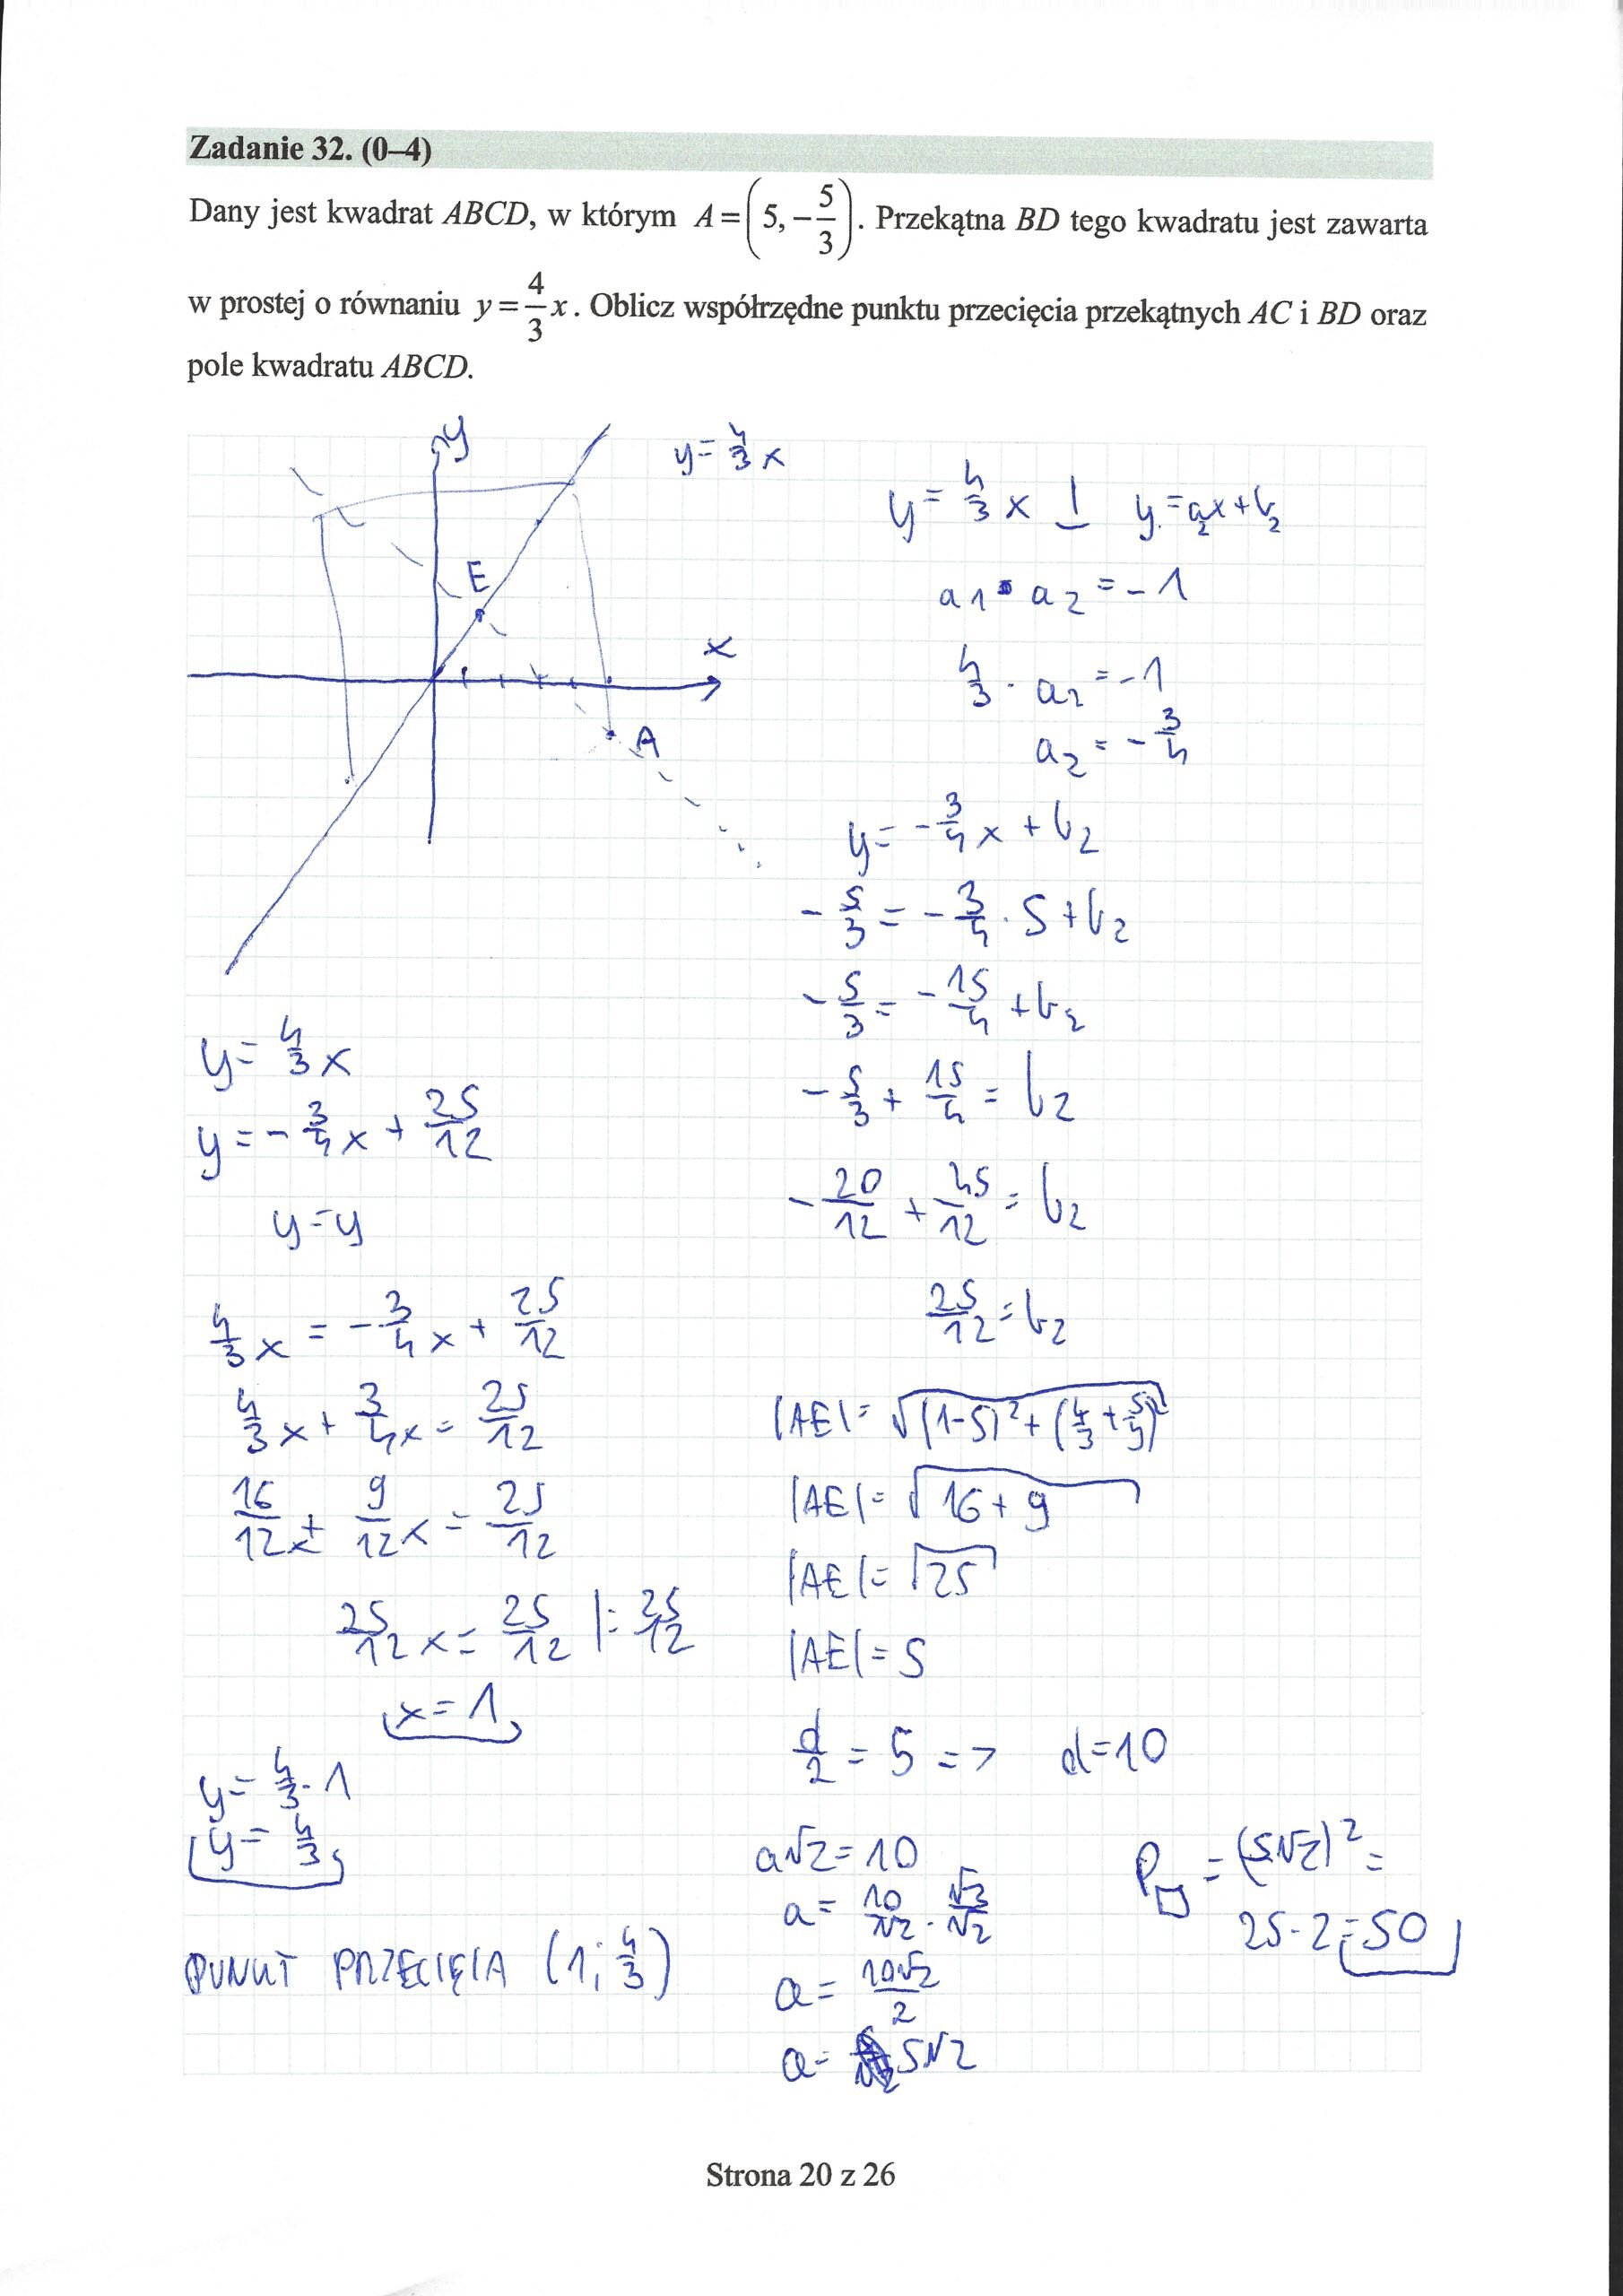 Zadanie 32. (0–4)
Dany jest kwadrat ABCD, w którym A = (5, −5/3). Przekątna BD tego kwadratu jest zawarta
w prostej o równaniu y = 4/3 x. Oblicz współrzędne punktu przecięcia przekątnych AC i BD oraz
pole kwadratu ABCD.
y
y = 4/3 x
E
x
A
y = 4/3 x ⊥ y = a2x + b2
a1 · a2 = −1
4/3 · a2 = −1
a2 = −3/4
y = −3/4 x + b2
−5/3 = −3/4 · 5 + b2
−5/3 = −15/4 + b2
−5/3 + 15/4 = b2
−20/12 + 45/12 = b2
25/12 = b2
y = 4/3 x
y = −3/4 x + 25/12
y = y
4/3 x = −3/4 x + 25/12
4/3 x + 3/4 x = 25/12
16/12 x + 9/12 x = 25/12
25/12 x = 25/12 |: 25/12
x = 1
y = 4/3 · 1
y = 4/3
PUNKT PRZECIĘCIA (1; 4/3)
|AE| = √((1−5)² + (4/3 + 5/3)²)
|AE| = √(16 + 9)
|AE| = √25
|AE| = 5
d/2 = 5 => d = 10
a√2 = 10
a = 10/√2 · √2/√2
a = 10√2/2
a = 5√2
P□ = (5√2)² =
25 · 2 = 50
Strona 20 z 26